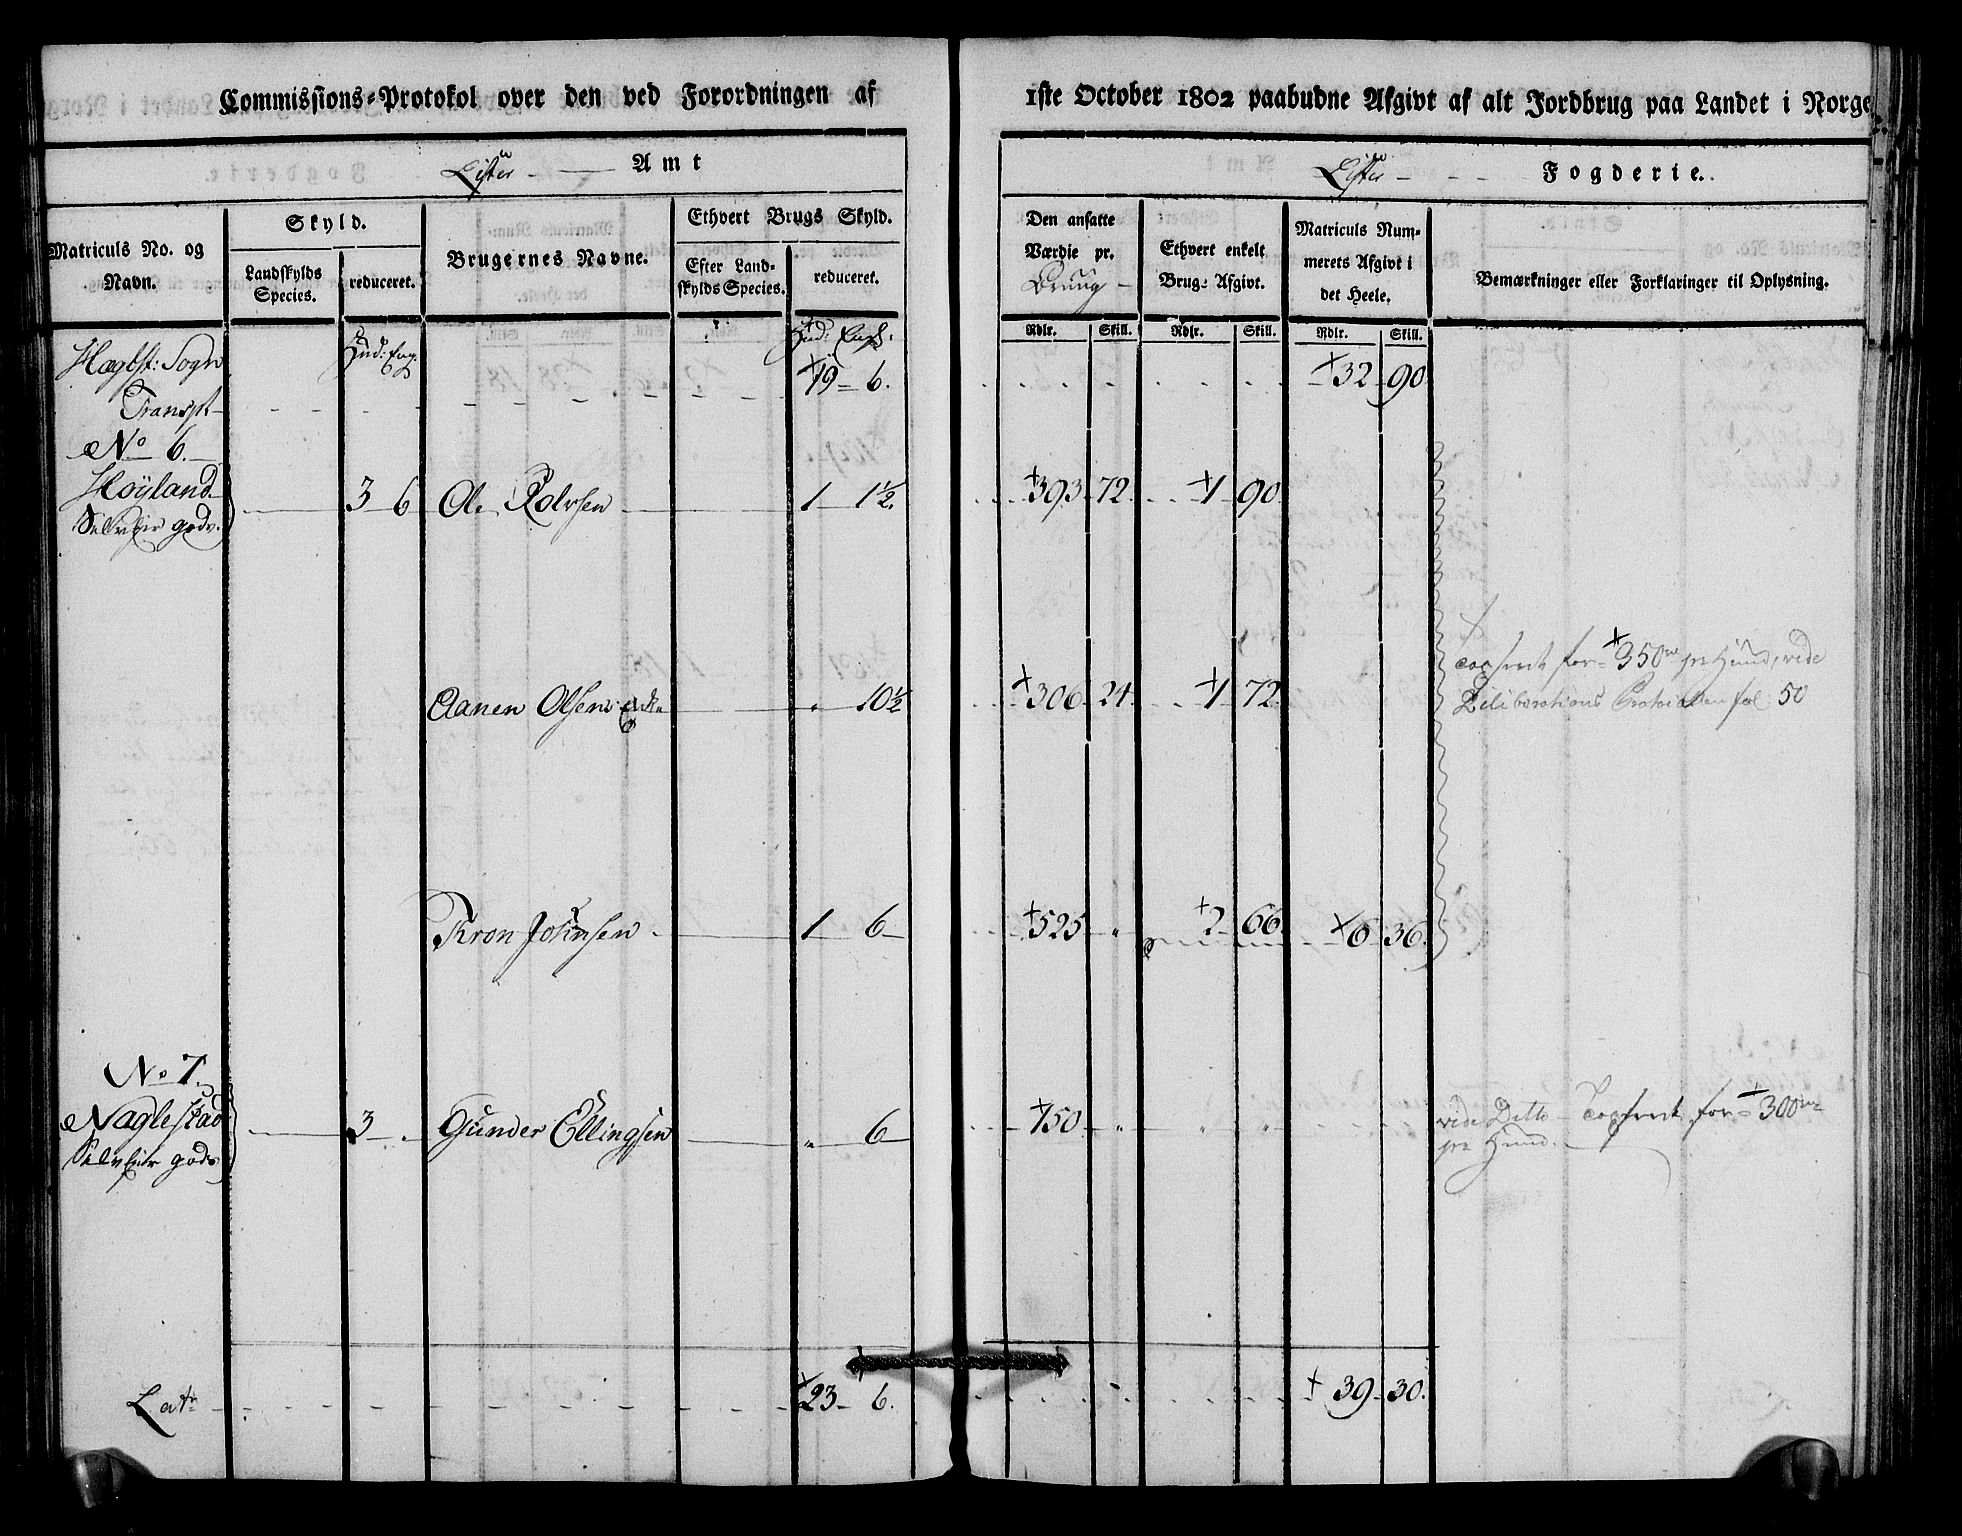 Commissions-Protokol over den ved Forordningen af 1ste October 1802 paabudne Afgivt af alt Jordbrug paa Landet i Norge
Lister Amt
Lister Fogderie.
Matriculs No. og Navn.
Skyld.
Landskylds Species.
reduceret.
Brugernes Navne.
Ethvert Brugs Skyld.
Efter Landskylds Species.
reduceret.
Den ansatte Værdie pr. Bruug
Ethvert enkelt Brugs Afgivt.
Matriculs Nummerets Afgivt i det Heele.
Bemærkninger eller Forklaringer til Oplysning.
Rdlr. Skill. Rdlr. Skill. Rdlr. Skill.
Hægbst: Sogn Hud: Eng: Hud: Eng:
Transpt 19 6. 32 90
No 6.
Høyland 3 6 Ole Rolvsen 1 1½. 393 72. 1 90
Selveier gods.
Aanen Olsen 10½ 306 24 1 72
for 350 pr Hud, vide
Deliberations Protocollen fol: 50
Tron Johnsen 1 6 525 " 2 66 6 36.
No 7.
Naglestad 3 . Gunder Ellingsen " 6 150 " " "
Selveier gods
vide Ditto for 300
pr Hud.
Latr 23 6. 39 30.